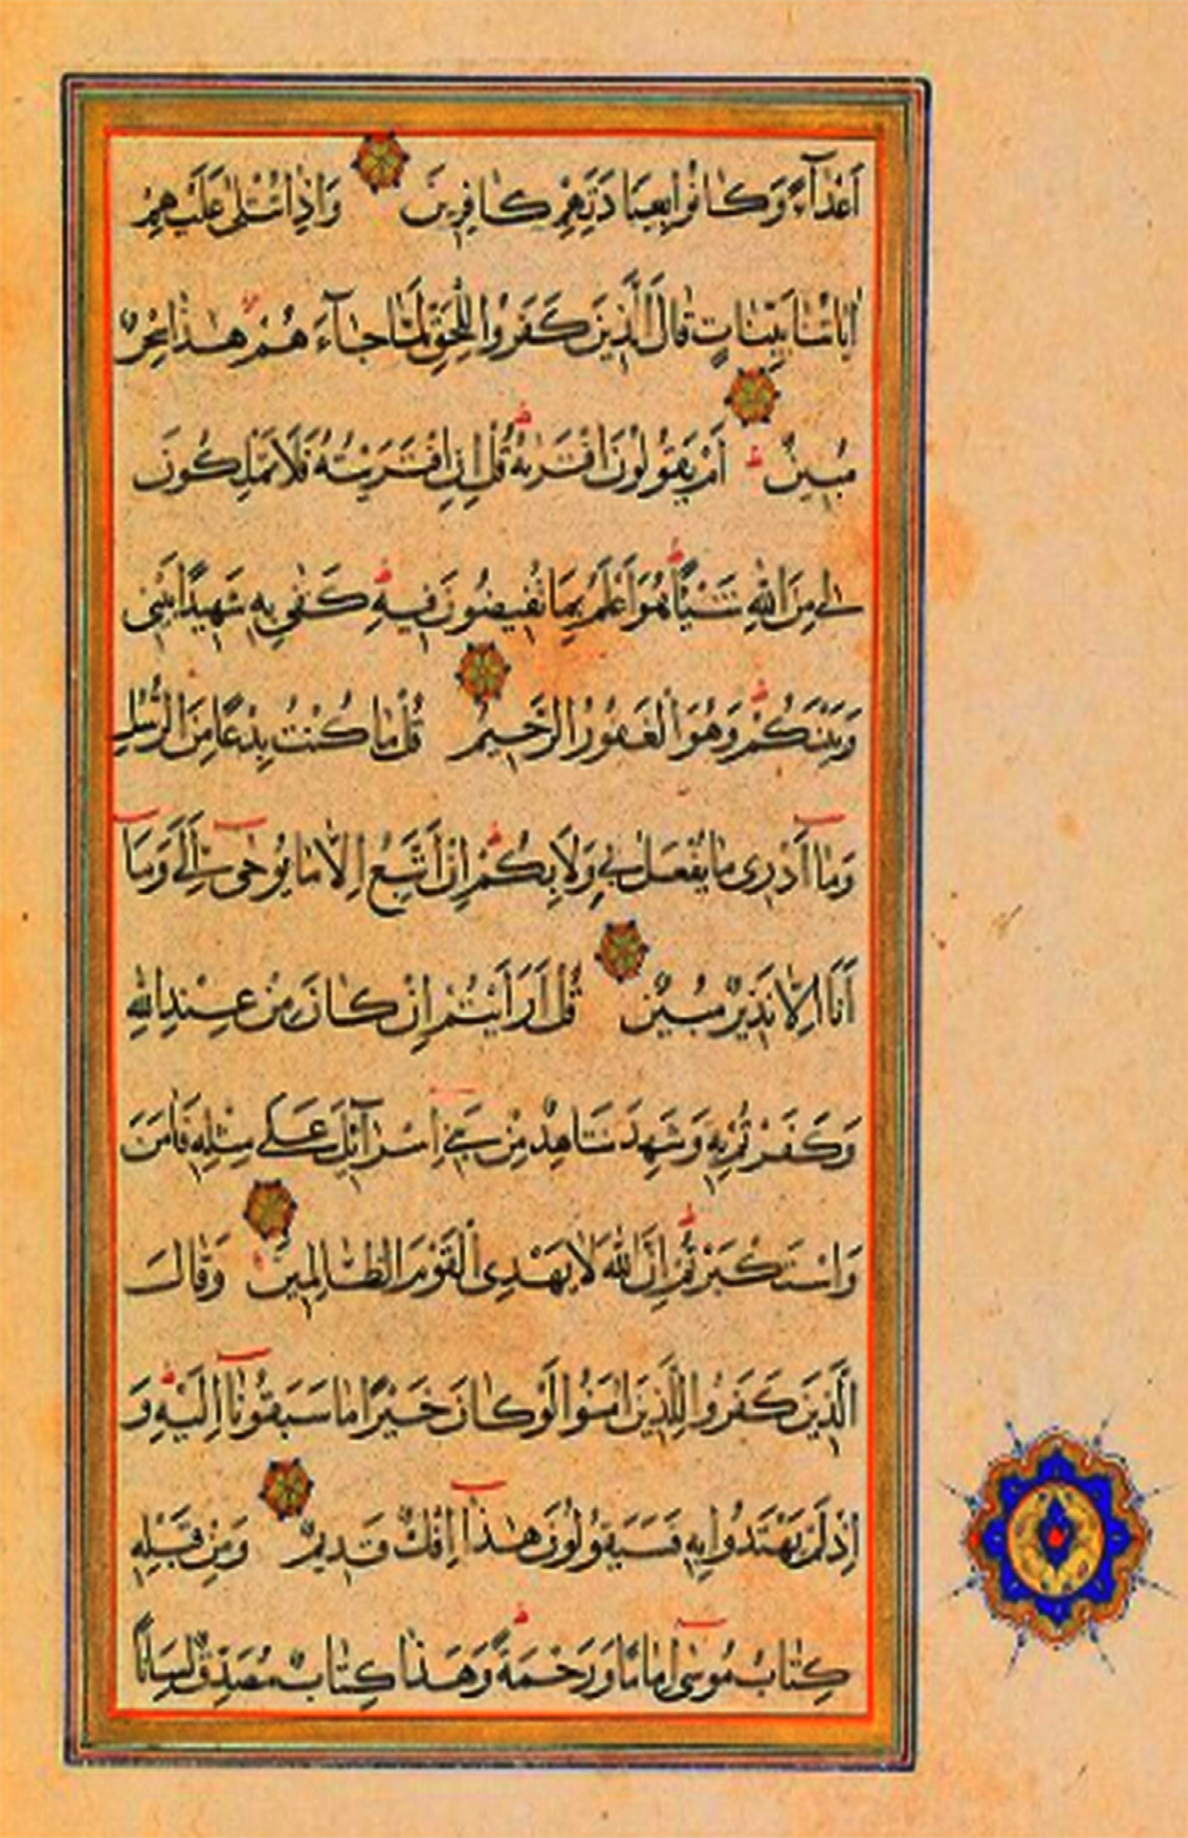 اَعْدَآءً وَكَانُوا بِعِبَادَتِهِمْ كَافِرِينَ وَاِذَا تُتْلٰى عَلَيْهِمْ
اٰيَاتُنَا بَيِّنَاتٍ قَالَ الَّذِينَ كَفَرُوا لِلْحَقِّ لَمَّا جَآءَهُمْ هٰذَا سِحْرٌ
مُبِينٌ اَمْ يَقُولُونَ افْتَرٰيهُ قُلْ اِنِ افْتَرَيْتُهُ فَلَا تَمْلِكُونَ
لِي مِنَ اللّٰهِ شَيْئًا هُوَ اَعْلَمُ بِمَا تُفِيضُونَ فِيهِ كَفٰى بِهِ شَهِيدًا بَيْنِي
وَبَيْنَكُمْ وَهُوَ الْغَفُورُ الرَّحِيمُ قُلْ مَا كُنْتُ بِدْعًا مِنَ الرُّسُلِ
وَمَا اَدْرِى مَا يُفْعَلُ بِي وَلَا بِكُمْ اِنْ اَتَّبِعُ اِلَّا مَا يُوحٰى اِلَيَّ وَمَا
اَنَا اِلَّا نَذِيرٌ مُبِينٌ قُلْ اَرَاَيْتُمْ اِنْ كَانَ مِنْ عِنْدِ اللّٰهِ
وَكَفَرْتُمْ بِهِ وَشَهِدَ شَاهِدٌ مِنْ بَنِي اِسْرَآئِلَ عَلٰى مِثْلِهِ فَاٰمَنَ
وَاسْتَكْبَرْتُمْ اِنَّ اللّٰهَ لَا يَهْدِى الْقَوْمَ الظَّالِمِينَ وَقَالَ
الَّذِينَ كَفَرُوا لِلَّذِينَ اٰمَنُوا لَوْ كَانَ خَيْرًا مَا سَبَقُونَا اِلَيْهِ وَ
اِذْ لَمْ يَهْتَدُوا بِهِ فَسَيَقُولُونَ هٰذَا اِفْكٌ قَدِيمٌ وَمِنْ قَبْلِهِ
كِتَابُ مُوسٰى اِمَامًا وَرَحْمَةً وَهٰذَا كِتَابٌ مُصَدِّقٌ لِسَانًا